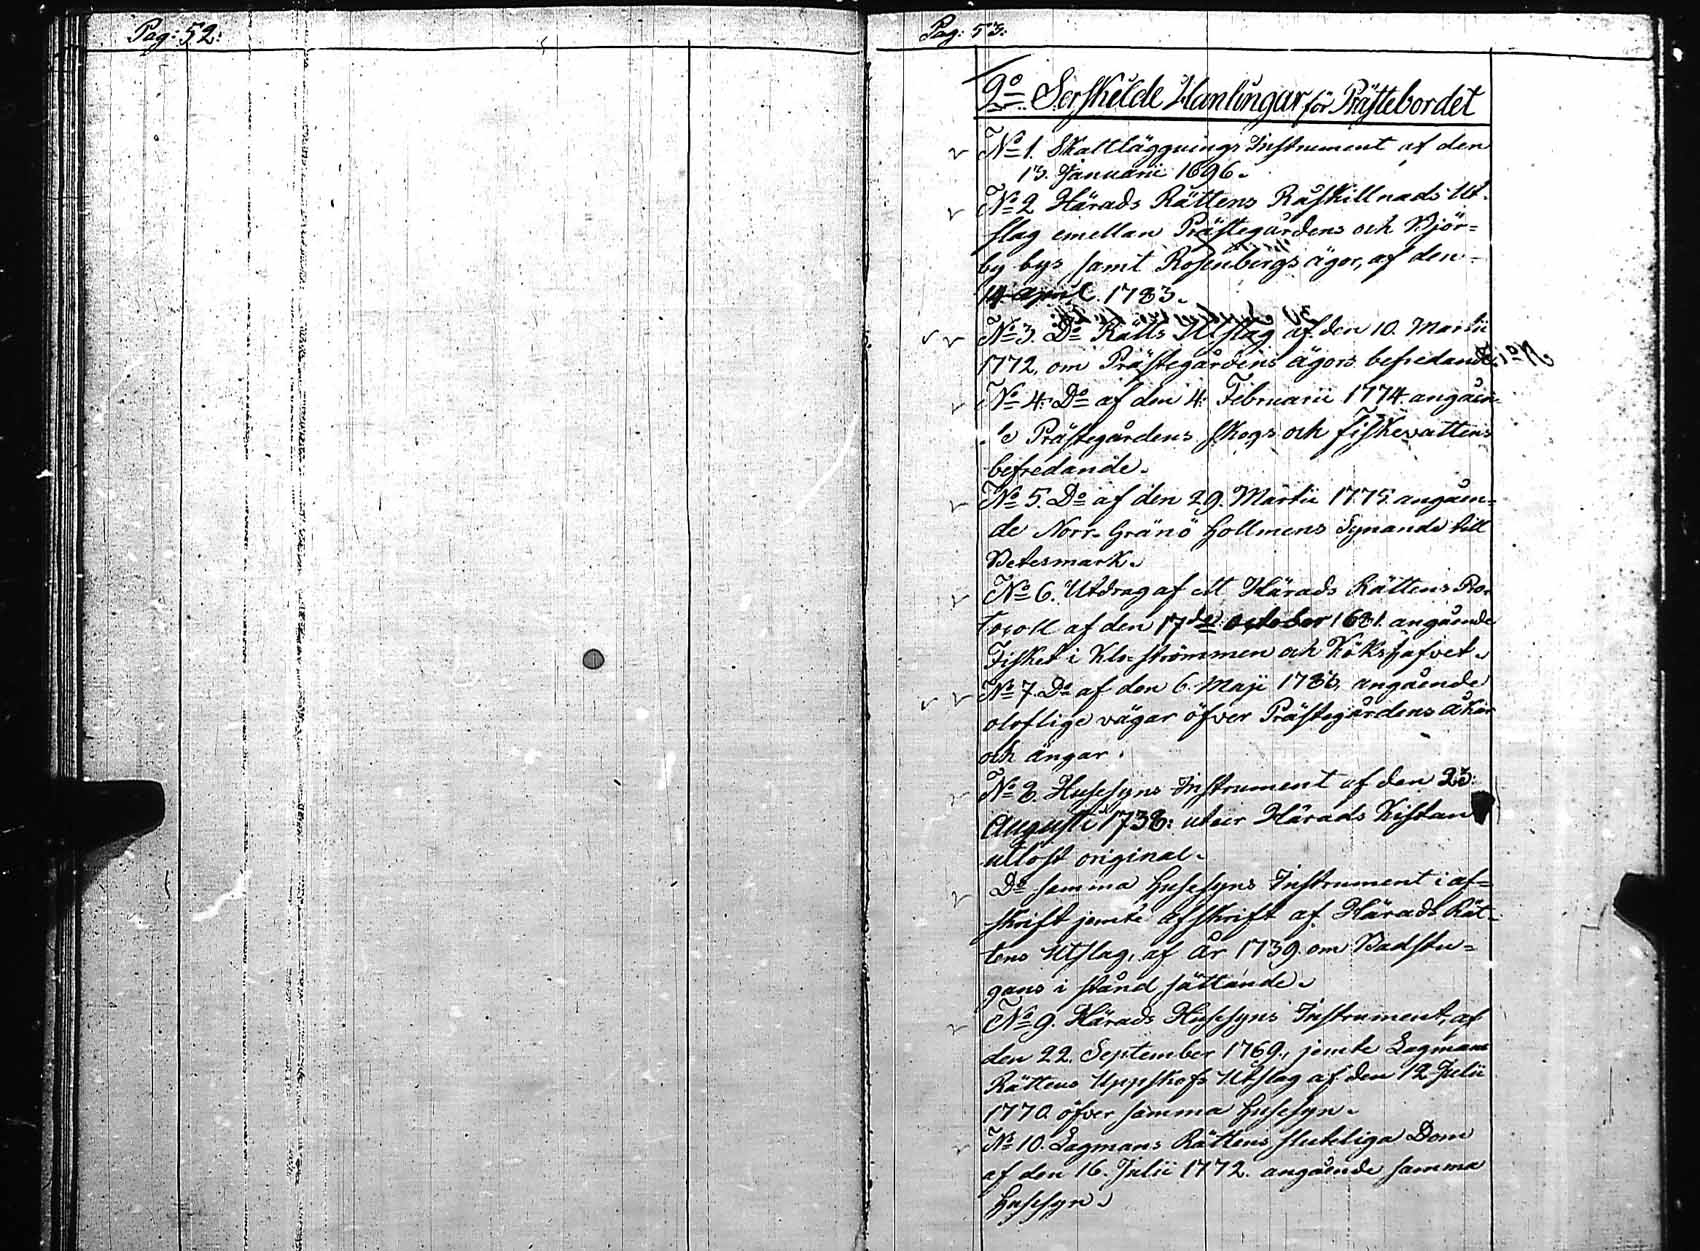 Pag: 52:
Pag: 53:
9o Serskilde Hanlingar för Prästebordet
No 1. Skattläggnings Instrument af den
13. Januarii 1696.
No 2 Härads Rättens Råskillnads Ut-
slag emellan Prästegårdens och Björ=
by bys samt Rosenbergs ägor, af den
14 April 1783.
No 3. Do Rätts Utslag af den 10. Martii
1772, om Prästegårdens ägors befredande
No 4. Do af den 4. Februarii 1774. angåen-
de Prästegårdens skogs och fiskevattens
befredande.
No 5. Do af den 29. Martii 1775. angåen=
de Norr-Gränö hollmens Synande till
Betesmark.
No 6. Utdrag af ett Härads Rättens Pro-
tocoll af den 17de october 1681. angående
Fisket i strömmen och Kökshafvet.
No 7. Do af den 6. Maji 1786, angående
oloflige vägar öfver Prästegårdens åker
och ängar.
No 8. Husesyns Instrument af den 23.
Augusti 1738: utur Härads Kistan
utlöst original.
Do samma husesyns Instrument i af=
skrift jemte afskrift af Härads Rät-
tens Utslag, af år 1739. om Badstu=
gans i stånd sättande.
No 9. Härads Husesyns Instrument, af
den 22. September 1769., jemte Lagmans
Rättens Uppskofs Utslag af den 12 Julii
1770. öfver samma husesyn.
No 10. Lagmans Rättens sluteliga Dom
af den 16. Julii 1772. angående samma
husesyn.